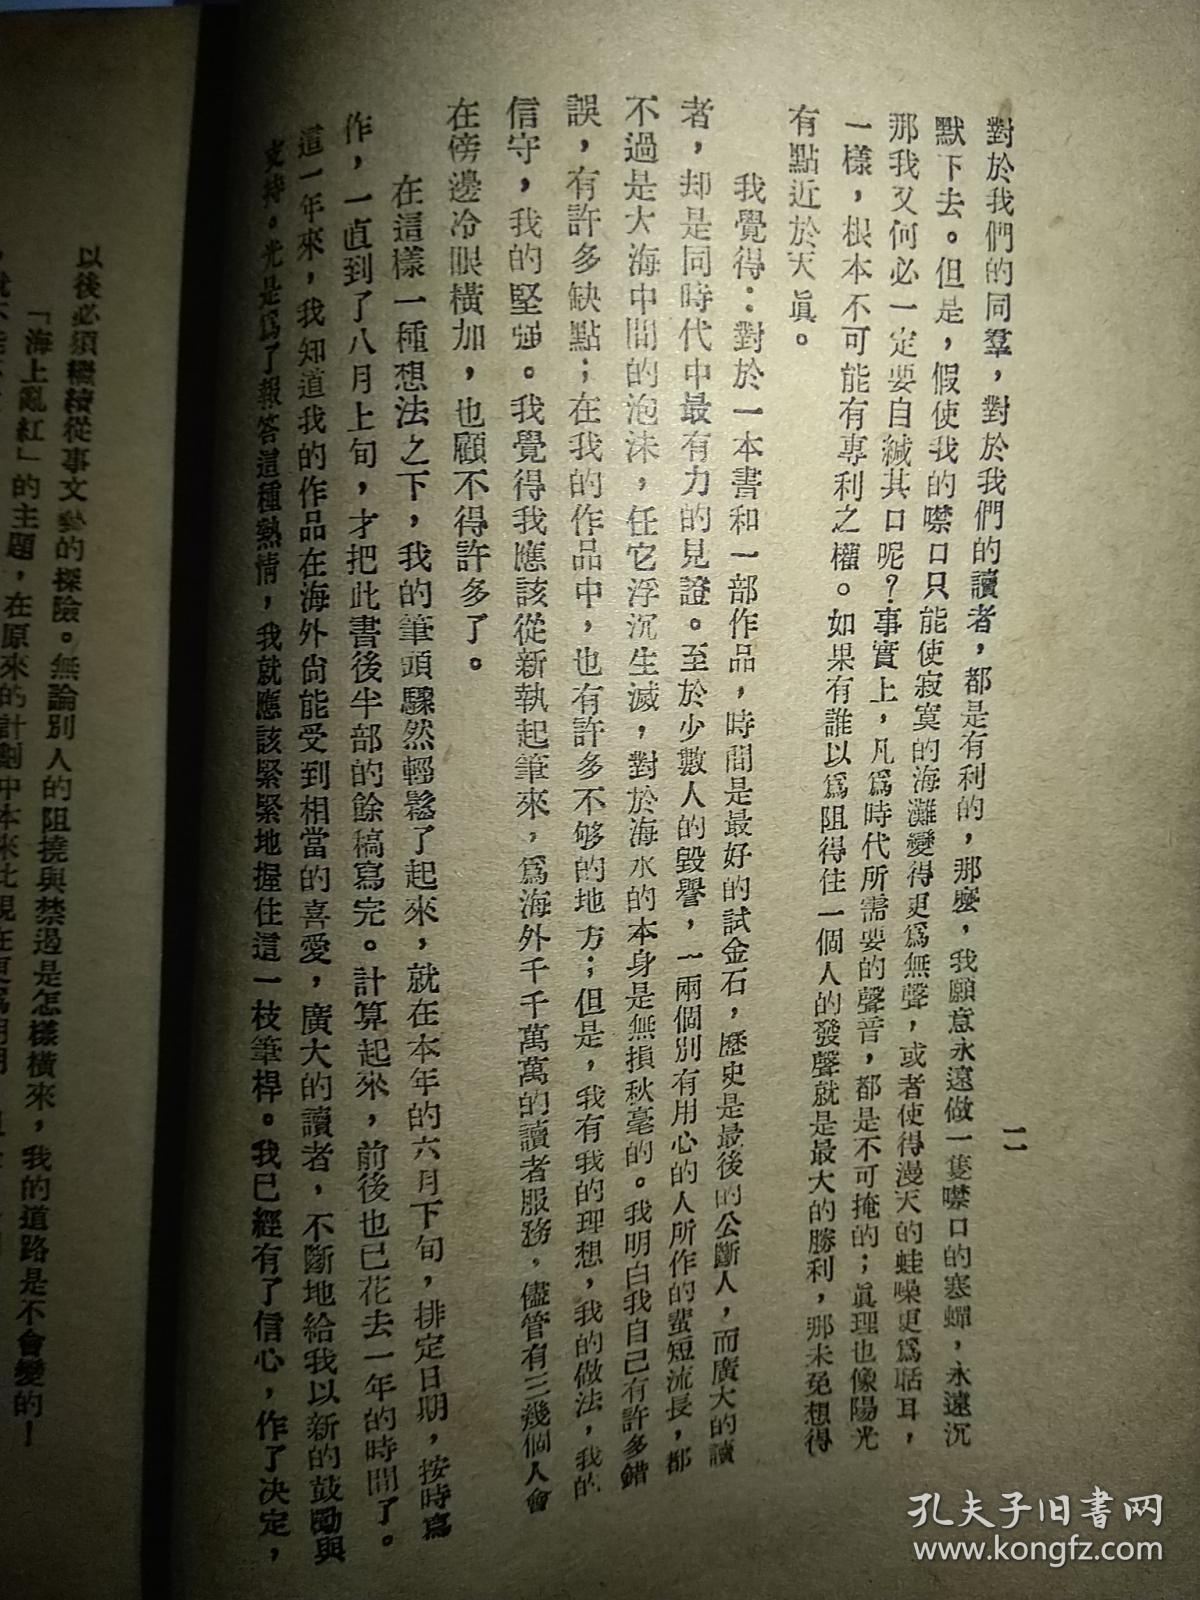 二
對於我們的同羣，對於我們的讀者，都是有利的，那麼，我願意永遠做一隻噤口的寒蟬，永遠沉
默下去。但是，假使我的噤口只能使寂寞的海灘變得更爲無聲，或者使得漫天的蛙噪更爲聒耳，
那我又何必一定要自緘其口呢？事實上，凡爲時代所需要的聲音，都是不可掩的；眞理也像陽光
一樣，根本不可能有專利之權。如果有誰以爲阻得住一個人的發聲就是最大的勝利，那未免想得
有點近於天眞。
我覺得：對於一本書和一部作品，時間是最好的試金石，歷史是最後的公斷人，而廣大的讀
者，却是同時代中最有力的見證。至於少數人的毀譽，一兩個別有用心的人所作的蜚短流長，都
不過是大海中間的泡沫，任它浮沉生滅，對於海水的本身是無損秋毫的。我明白我自己有許多錯
誤，有許多缺點；在我的作品中，也有許多不够的地方；但是，我有我的理想，我的做法，我的
信守，我的堅强。我覺得我應該從新執起筆來，爲海外千千萬萬的讀者服務，儘管有三幾個人會
在傍邊冷眼橫加，也顧不得許多了。
在這樣一種想法之下，我的筆頭驟然輕鬆了起來，就在本年的六月下旬，排定日期，按時寫
作，一直到了八月上旬，才把此書後半部的餘稿寫完。計算起來，前後也已花去一年的時間了。
這一年來，我知道我的作品在海外尙能受到相當的喜愛，廣大的讀者，不斷地給我以新的鼓勵與
支持。光是爲了報答這種熱情，我就應該緊緊地握住這一枝筆桿。我已經有了信心，作了决定，
以後必須繼續從事文藝的探險。無論別人的阻撓與禁遏是怎樣橫來，我的道路是不會變的！
「海上亂紅」的主題，在原來的計劃中本來比現在更爲明
孔夫子旧书网
www.kongfz.com